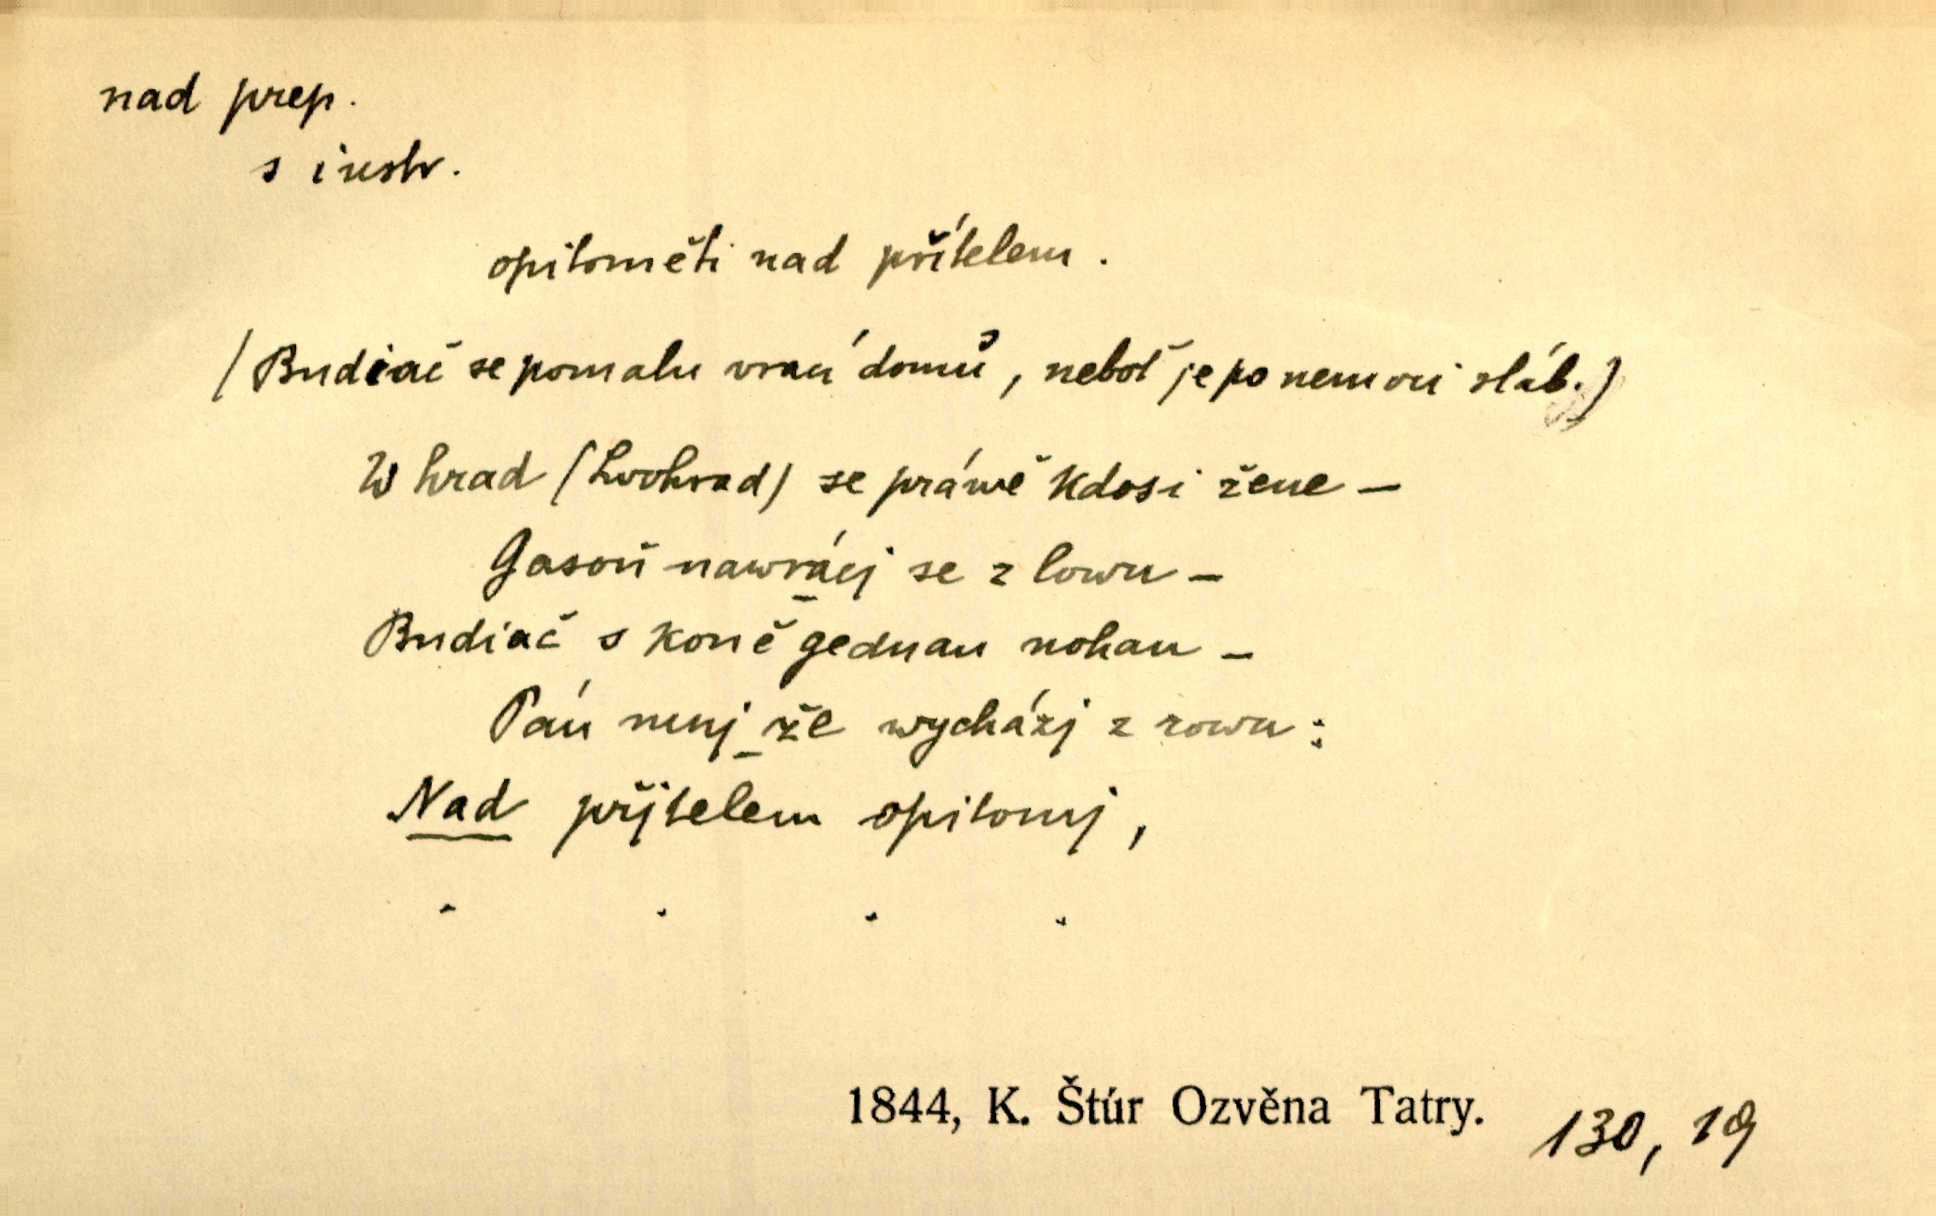 nad prep.
s instr.
opitoměti nad přítelem.
(Budiač se pomalu vrací domů, neboť je po nemoci sláb.)
W hrad (Lwohrad) se práwě kdosi žene –
Gasoň nawrácj se z lowu –
Budiač s koně gednau nohau –
Pán mnj že wycházj z rowu:
Nad přjtelem opitomj,
. . . .
1844, K. Štúr Ozvěna Tatry. 130, 19